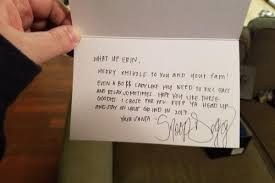 WHAT UP ERIN,
MERRY XMIZZLE TO YOU AND YOUR FAM!
EVEN A BO$$ LADY LIKE YOU NEED TO KICK BACC
AND RELAX SOMETIMES. HOPE YOU LIKE THESE
GOODIES I CHOSE FOR YOU. KEEP YA HEAD UP
AND STAY ON YOUR GRIND IN 2017
YOUR SANTA,
Snoop Dogg